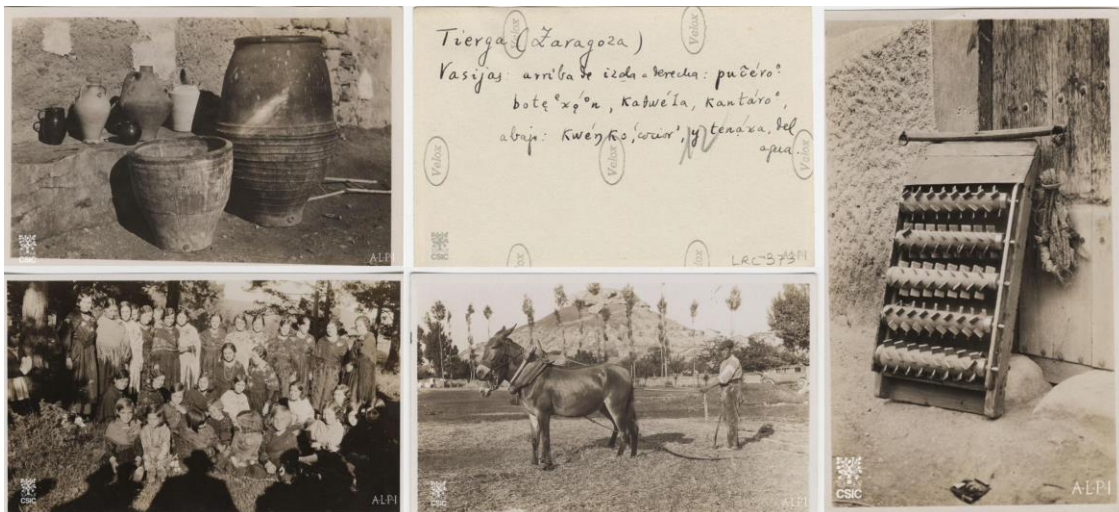 CSIC
A·L·P·I
Tierga (Zaragoza)
Vasijas: arriba de izda a derecha: putéro
kantáro
abajo: y tenáxa, del
agua.
Velox
Velox
Velox
Velox
Velox
Velox
Velox
CSIC
LRC-373
A·L·P·I
CSIC
A·L·P·I
CSIC
A·L·P·I
CSIC
A·L·P·I